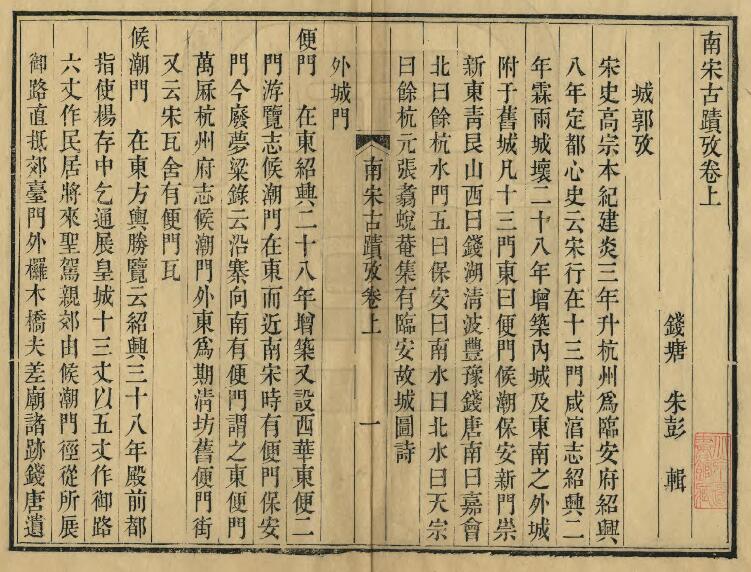 南宋古蹟攷卷上
錢塘 朱彭 輯
城郭攷
宋史高宗本紀建炎三年升杭州爲臨安府紹興
八年定都心史云宋行在十三門咸淳志紹興二
年霖雨城壞二十八年增築內城及東南之外城
附于舊城凡十三門東曰便門候潮保安新門崇
新東靑艮山西曰錢湖清波豐豫錢唐南曰嘉會
北曰餘杭水門五曰保安曰南水曰北水曰天宗
曰餘杭元張翥蛻菴集有臨安故城圖詩
南宋古蹟攷卷上 一
外城門
便門 在東紹興二十八年增築又設西華東便二
門游覽志候潮門在東而近南宋時有便門保安
門今廢夢粱錄云沿寨向南有便門謂之東便門
萬厤杭州府志候潮門外東爲期淸坊舊便門街
又云宋瓦舍有便門瓦
候潮門 在東方輿勝覽云紹興三十八年殿前都
指使楊存中乞通展皇城十三丈以五丈作御路
六丈作民居將來聖駕親郊由候潮門徑從所展
御路直抵郊臺門外欏木橋夫差廟諸跡錢唐遺